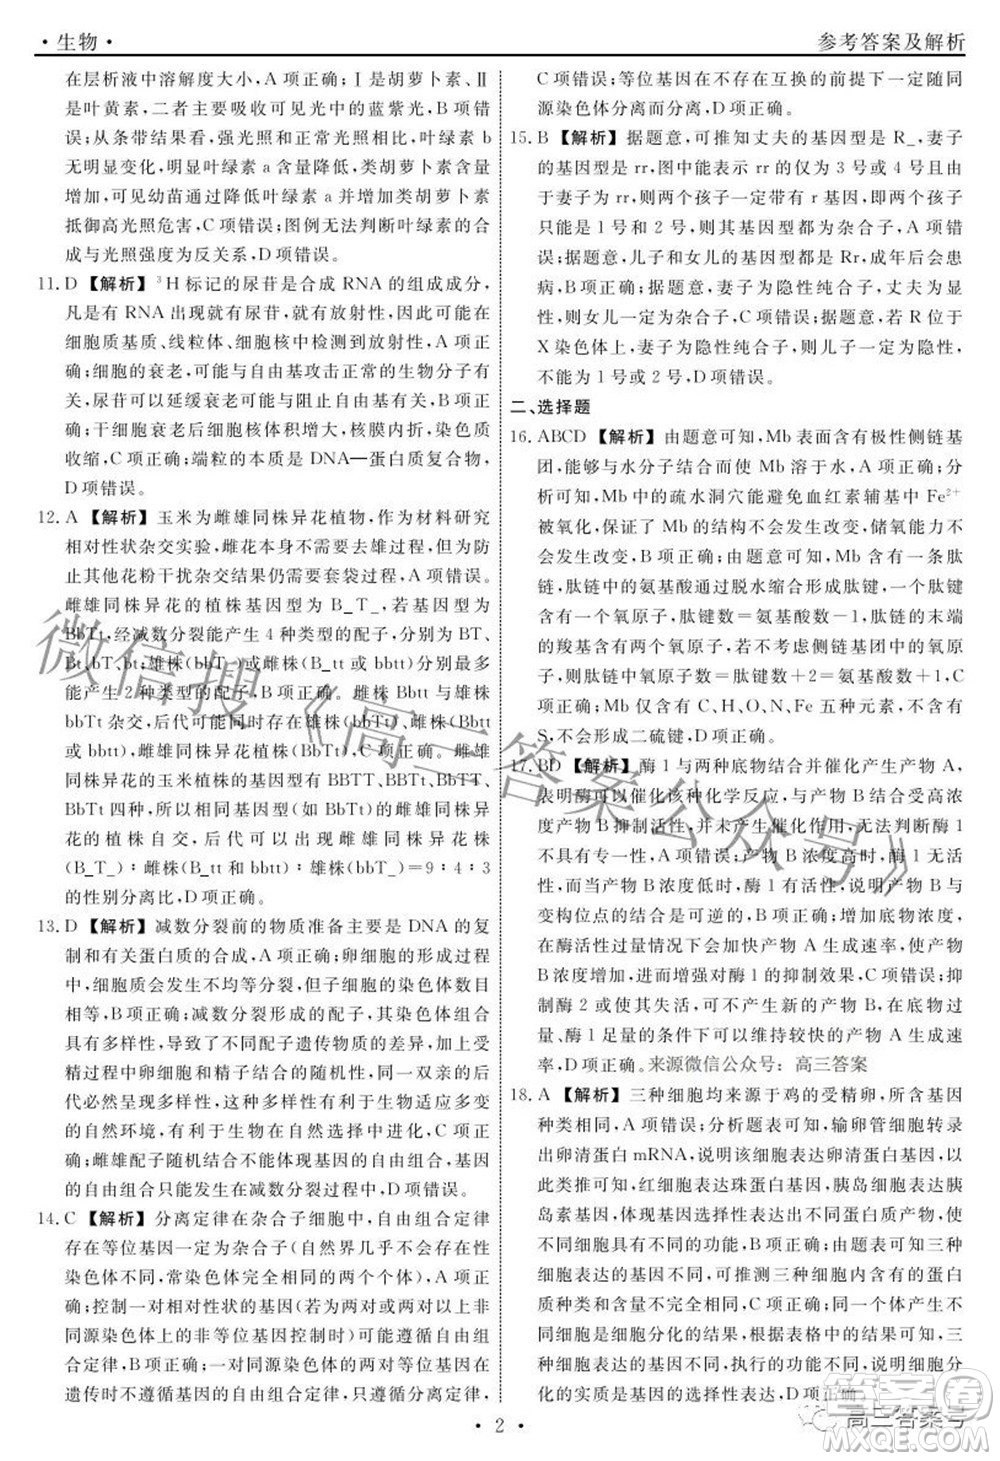 ·生物·
参考答案及解析
在层析液中溶解度大小，A 项正确；Ⅰ是胡萝卜素、Ⅱ
是叶黄素，二者主要吸收可见光中的蓝紫光，B 项错
误；从条带结果看，强光照和正常光照相比，叶绿素 b
无明显变化，明显叶绿素 a 含量降低，类胡萝卜素含量
增加，可见幼苗通过降低叶绿素 a 并增加类胡萝卜素
抵御高光照危害，C 项错误；图例无法判断叶绿素的合
成与光照强度为反关系，D 项错误。
11. D 【解析】³H 标记的尿苷是合成 RNA 的组成成分，
凡是有 RNA 出现就有尿苷，就有放射性，因此可以在
细胞质基质、线粒体、细胞核中检测到放射性，A 项正
确；细胞的衰老，可能与自由基攻击正常的生物分子有
关，尿苷可以延缓衰老可能与其抑制自由基有关，B 项
正确；干细胞衰老后细胞核体积增大，核膜内折，染色质
收缩，C 项正确；端粒的本质是 DNA—蛋白质复合物，
D 项错误。
12. A 【解析】玉米为雌雄同株异花植物，作为材料研究
相对性状杂交实验，雌花本身不需要去雄过程，但防止
其他花粉干扰杂交结果仍需要套袋过程，A 项错误；
雌雄同株异花的植株基因型为 B_T_，若基因型为
BbTt，经减数分裂能产生 4 种类型的配子，分别为 BT、
Bt、bT、bt，雄株(bbT_)或雌株(B_tt 或 bbtt)分别最多
能产生 2 种类型的配子，B 项正确；雌株 Bbtt 与雄株
bbTt 杂交，后代可能同时存在雄株(bbTt)、雌株(Bbtt
或 bbtt)，雌雄同株异花植株(BbTt)，C 项正确；雌雄
同株异花的玉米植株的基因型有 BBTT、BBTt、BbTT、
BbTt 四种，所以相同基因型(如 BbTt)雌雄同株异花
的植株自交，后代可以出现雌雄同株异花
(B_T_)∶雌株(B_tt 和 bbtt)∶雄株(bbT_)＝9∶4∶3
的性别分离比，D 项正确。
13. D 【解析】减数分裂前的物质准备主要是 DNA 的复
制和有关蛋白质的合成，A 项正确；卵细胞的形成过程
中，细胞质会发生不均等分裂，但子细胞的染色体数目
相同，B 项正确；减数分裂形成的配子，其染色体组合具
有多样性，导致了不同配子遗传物质的差异，加上受精
过程中卵细胞和精子结合的随机性，同一双亲的后
代必然呈现多样性，这种多样性有利于生物适应多变
的自然环境，有利于生物在自然选择中进化，C 项正
确；雌雄配子随机结合不能体现基因的自由组合，基因
的自由组合发生在减数分裂过程中，D 项错误。
14. C 【解析】分离定律在杂合子细胞中，自由组合定律
存在等位基因一定为杂合子(自然界几乎不会存在性
染色体不同，常染色体完全相同的两个个体)，A 项正
确；控制一对相对性状的基因(若为两对或以上非
同源染色体上的非等位基因控制时)可能符合自由组
合定律，B 项正确；一对同源染色体上的两对等位基因在
遗传时不遵循基因的自由组合定律，只遵循分离定律，
C 项错误；等位基因在不存在互换的前提下一定随同
源染色体分离而分离，D 项正确。
15. B 【解析】据题意，可推知丈夫的基因型是 R_，妻子
的基因型是 rr，图中能表示 rr 的仅为 3 号或 4 号，由
于妻子为 rr，则两个孩子一定带有 r 基因，即两个孩子
只能是 1 号或 2 号，则其基因型都为杂合子，A 项错
误；据题意，儿子和女儿的基因型都是 Rr，成年后会患
病，B 项正确；据题意，妻子为隐性纯合子，丈夫为显
性，则女儿一定为杂合子，C 项错误；据题意，若 R 位于
X 染色体上，妻子为隐性纯合子，则儿子一定为隐性，
不能为 1 号或 2 号，D 项错误。
二、选择题
16. ABCD 【解析】由题意可知，Mb 表面含有极性侧链基
团，能够与水分子结合，从而使 Mb 溶于水，A 项正确；
分析可知，Mb 中的疏水洞穴能避免血红素辅基中 Fe²⁺
被氧化，保证了 Mb 的结构不会发生改变，储氧能力不
会发生改变，B 项正确；由题意可知，Mb 含有一条肽
链，肽链中的氨基酸通过脱水缩合形成肽键，一个肽键
含有一个氧原子，肽键数＝氨基酸数－1，肽链的末端
的羧基含有两个氧原子，不考虑侧链基团中的氧原
子，则肽链中氧原子数＝肽键数＋2＝氨基酸数＋1，
C 项正确；Mb 含有 C、H、O、N、Fe 五种元素，不含有
S，不会形成二硫键，D 项正确。
17. BD 【解析】酶 1 与两种底物结合并催化产生产物 A，
表明酶可以催化该种化学反应，与产物 B 结合受高浓
度产物 B 抑制活性，并未产生催化作用，无法判断酶 1
不具有专一性，A 项错误；产物 B 浓度高时，酶 1 无活
性，而产物 B 浓度低时，酶 1 有活性，说明产物 B 与
变构位点的结合是可逆的，B 项正确；增加底物浓度，
在酶活性过量情况下会加快产物 A 生成速率，但产物
B 浓度增加，会增强对酶 1 的抑制效果，C 项错误；抑
制酶 2 或使其失活，可以不产生新的产物 B，底物过
量、酶 1 足量的条件下可以维持较快的产物 A 生成速
率，D 项正确。来源微信公众号：高三答案
18. A 【解析】三种细胞均来源于鸡的受精卵，所含基因
种类相同，A 项错误；分析题表可知，输卵管细胞只产
出卵清蛋白 mRNA，说明其选择性表达卵清蛋白基因，
类此可知，红细胞表达珠蛋白基因，胰岛细胞表达胰
岛素基因，说明基因的选择性表达塑造出具有特定形
态的细胞实现不同的功能，B 项正确；由题表可知，三种
细胞表达的基因不同，可说明三种细胞内含有的蛋白
质不同，功能也不同，因此同一个体产生不同的细
胞是细胞分化的结果，根据表格中的结果可知，三种细
胞中选择性表达的基因不同，由此可以进一步说明细胞分
化的实质是基因的选择性表达，D 项正确。
· 2 ·
微信搜《高三答案公众号》
答案卷
高三答案号
MXQE.COM